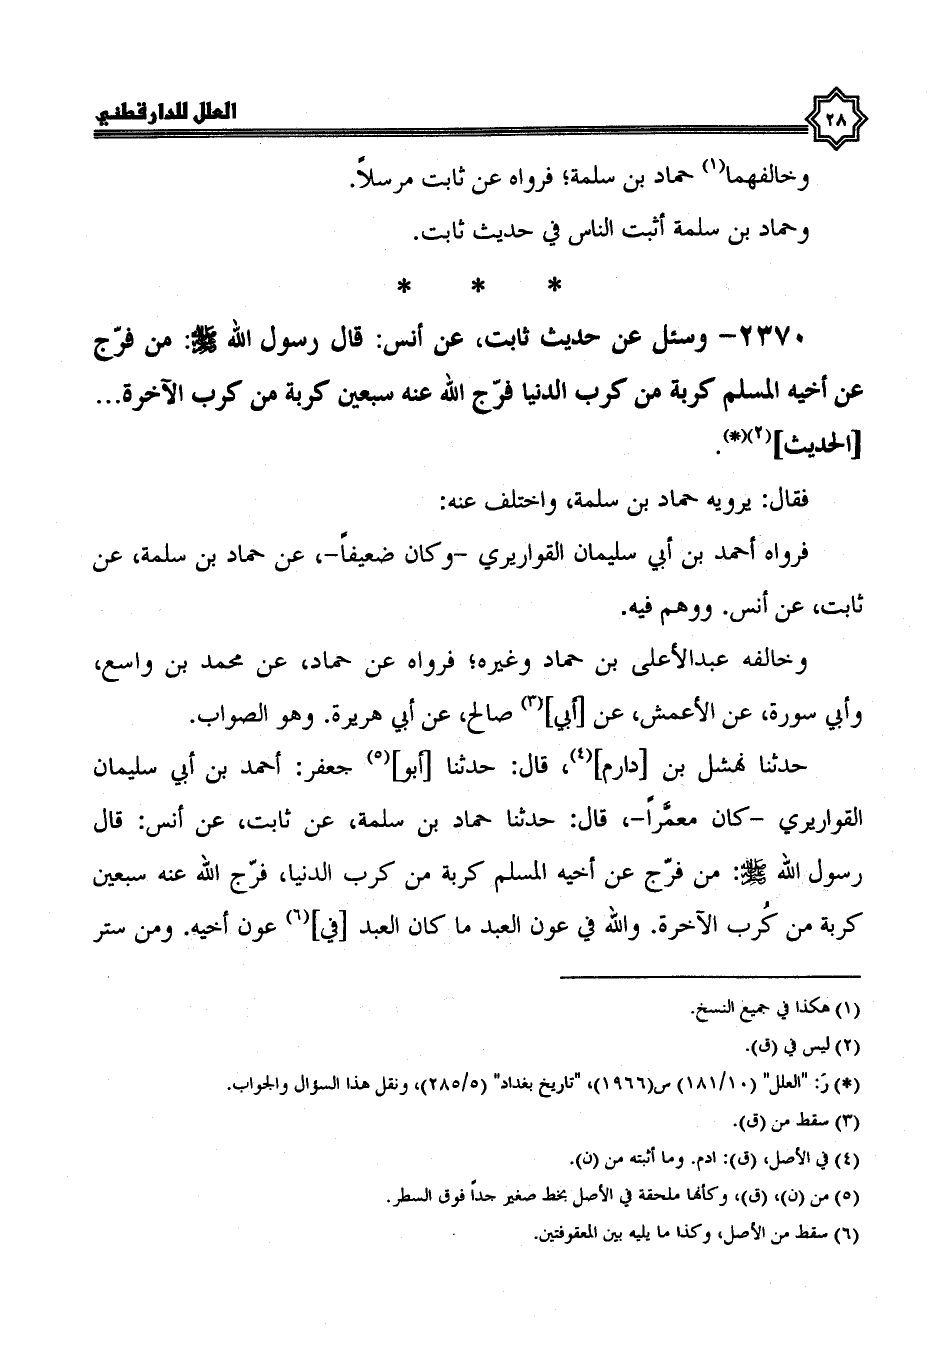 ٢٨
العلل للدارقطني
وخالفهما(١) حماد بن سلمة؛ فرواه عن ثابت مرسلاً.
وحماد بن سلمة أثبت الناس في حديث ثابت.
* * *
٢٣٧٠- وسئل عن حديث ثابت، عن أنس: قال رسول الله ﷺ: من فرّج
عن أخيه المسلم كربة من كرب الدنيا فرّج الله عنه سبعين كربة من كرب الآخرة...
[الحديث](٢)(*).
فقال: يرويه حماد بن سلمة، واختلف عنه:
فرواه أحمد بن أبي سليمان القواريري -وكان ضعيفاً-، عن حماد بن سلمة، عن
ثابت، عن أنس. ووهم فيه.
وخالفه عبدالأعلى بن حماد وغيره؛ فرواه عن حماد، عن محمد بن واسع،
وأبي سورة، عن الأعمش، عن [أبي](٣) صالح، عن أبي هريرة. وهو الصواب.
حدثنا نهشل بن [دارم](٤)، قال: حدثنا [أبو](٥) جعفر: أحمد بن أبي سليمان
القواريري -كان معمَّراً-، قال: حدثنا حماد بن سلمة، عن ثابت، عن أنس: قال
رسول الله ﷺ: من فرّج عن أخيه المسلم كربة من كرب الدنيا، فرّج الله عنه سبعين
كربة من كُرب الآخرة. والله في عون العبد ما كان العبد [في](٦) عون أخيه. ومن ستر
(١) هكذا في جميع النسخ.
(٢) ليس في (ق).
(*) رَ: "العلل" (١٨١/١٠) س(١٩٦٦)، "تاريخ بغداد" (٢٨٥/٥)، ونقل هذا السؤال والجواب.
(٣) سقط من (ق).
(٤) في الأصل، (ق): ادم. وما أثبته من (ن).
(٥) من (ن)، (ق)، وكأنها ملحقة في الأصل بخط صغير جداً فوق السطر.
(٦) سقط من الأصل، وكذا ما يليه بين المعقوفتين.